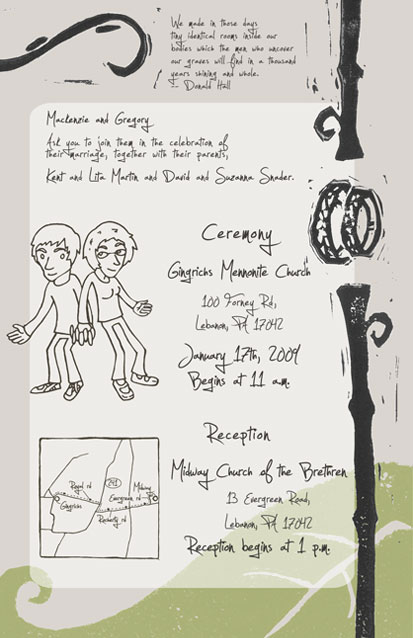 We made in those days
tiny identical rooms inside our
bodies which the men who uncover
our graves will find in a thousand
years shining and whole.
-- Donald Hall
Mackenzie and Gregory
Ask you to join them in the celebration of
their marriage, together with their parents,
Kent and Lita Martin and David and Suzanna Snader.
Ceremony
Gingrichs Mennonite Church
100 Forney Rd,
Lebanon, PA 17042
January 17th, 2009
Begins at 11 a.m.
Reception
Midway Church of the Brethren
13 Evergreen Road,
Lebanon, PA 17042
Reception begins at 1 p.m.
Royal rd
241
Midway
Evergreen rd
Gingrichs